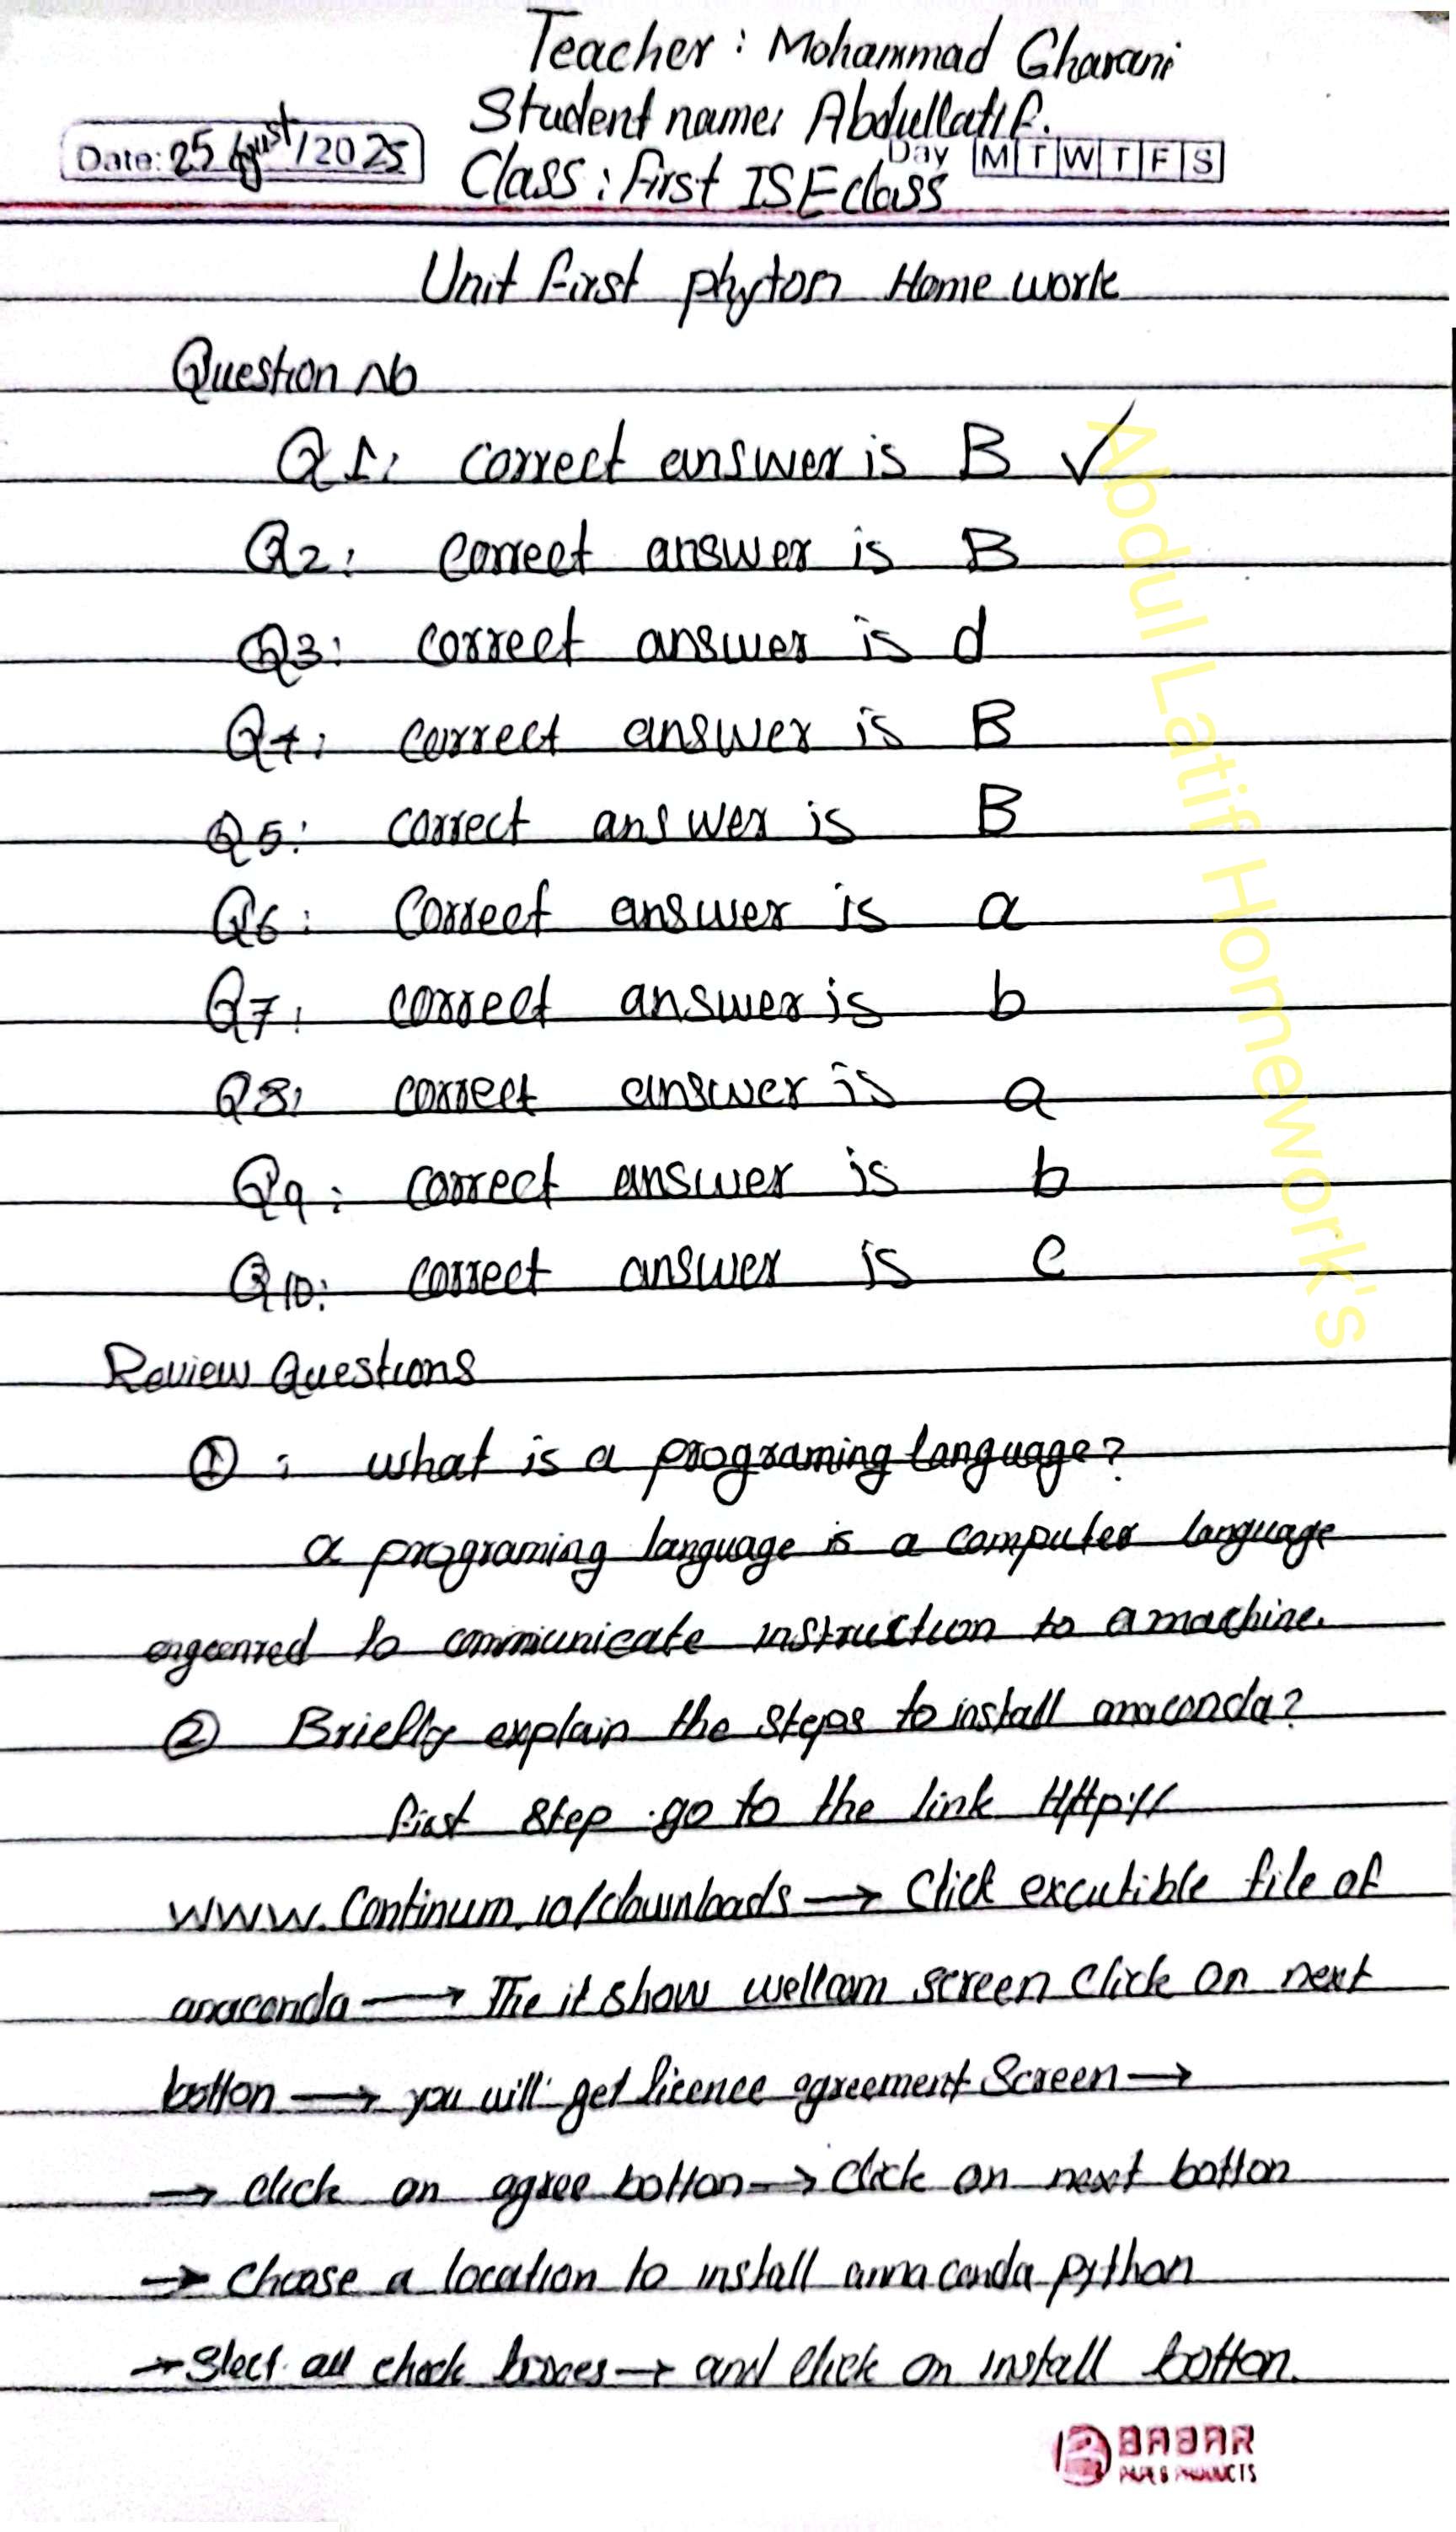 Teacher : Mohammad Gharani
Student name: Abdullatif.
Date: 25 August/2025
Day M T W T F S
Class : first ISE class
Unit first phyton Home work
Question No
Q1: correct answer is B ✓
Q2: correct answer is B
Q3: correct answer is d
Q4: correct answer is B
Q5: correct answer is B
Q6: correct answer is a
Q7: correct answer is b
Q8: correct answer is a
Q9: correct answer is b
Q10: correct answer is c
Abdul Latif Homework's
Review Questions
① : what is a programing language?
a programing language is a computer language
to communicate instruction to a machine.
② Briefly explain the steps to install anaconda?
first step go to the link Http://
www.Continum.io/downloads → Click excutible file of
anaconda → The it show wellcom screen click on next
botton → you will get licence agreement Screen →
→ click on agree botton → click on next botton
→ Choose a location to install annaconda python
→ Slect all check boxes → and click on install botton.
BABAR
PAPER PRODUCTS